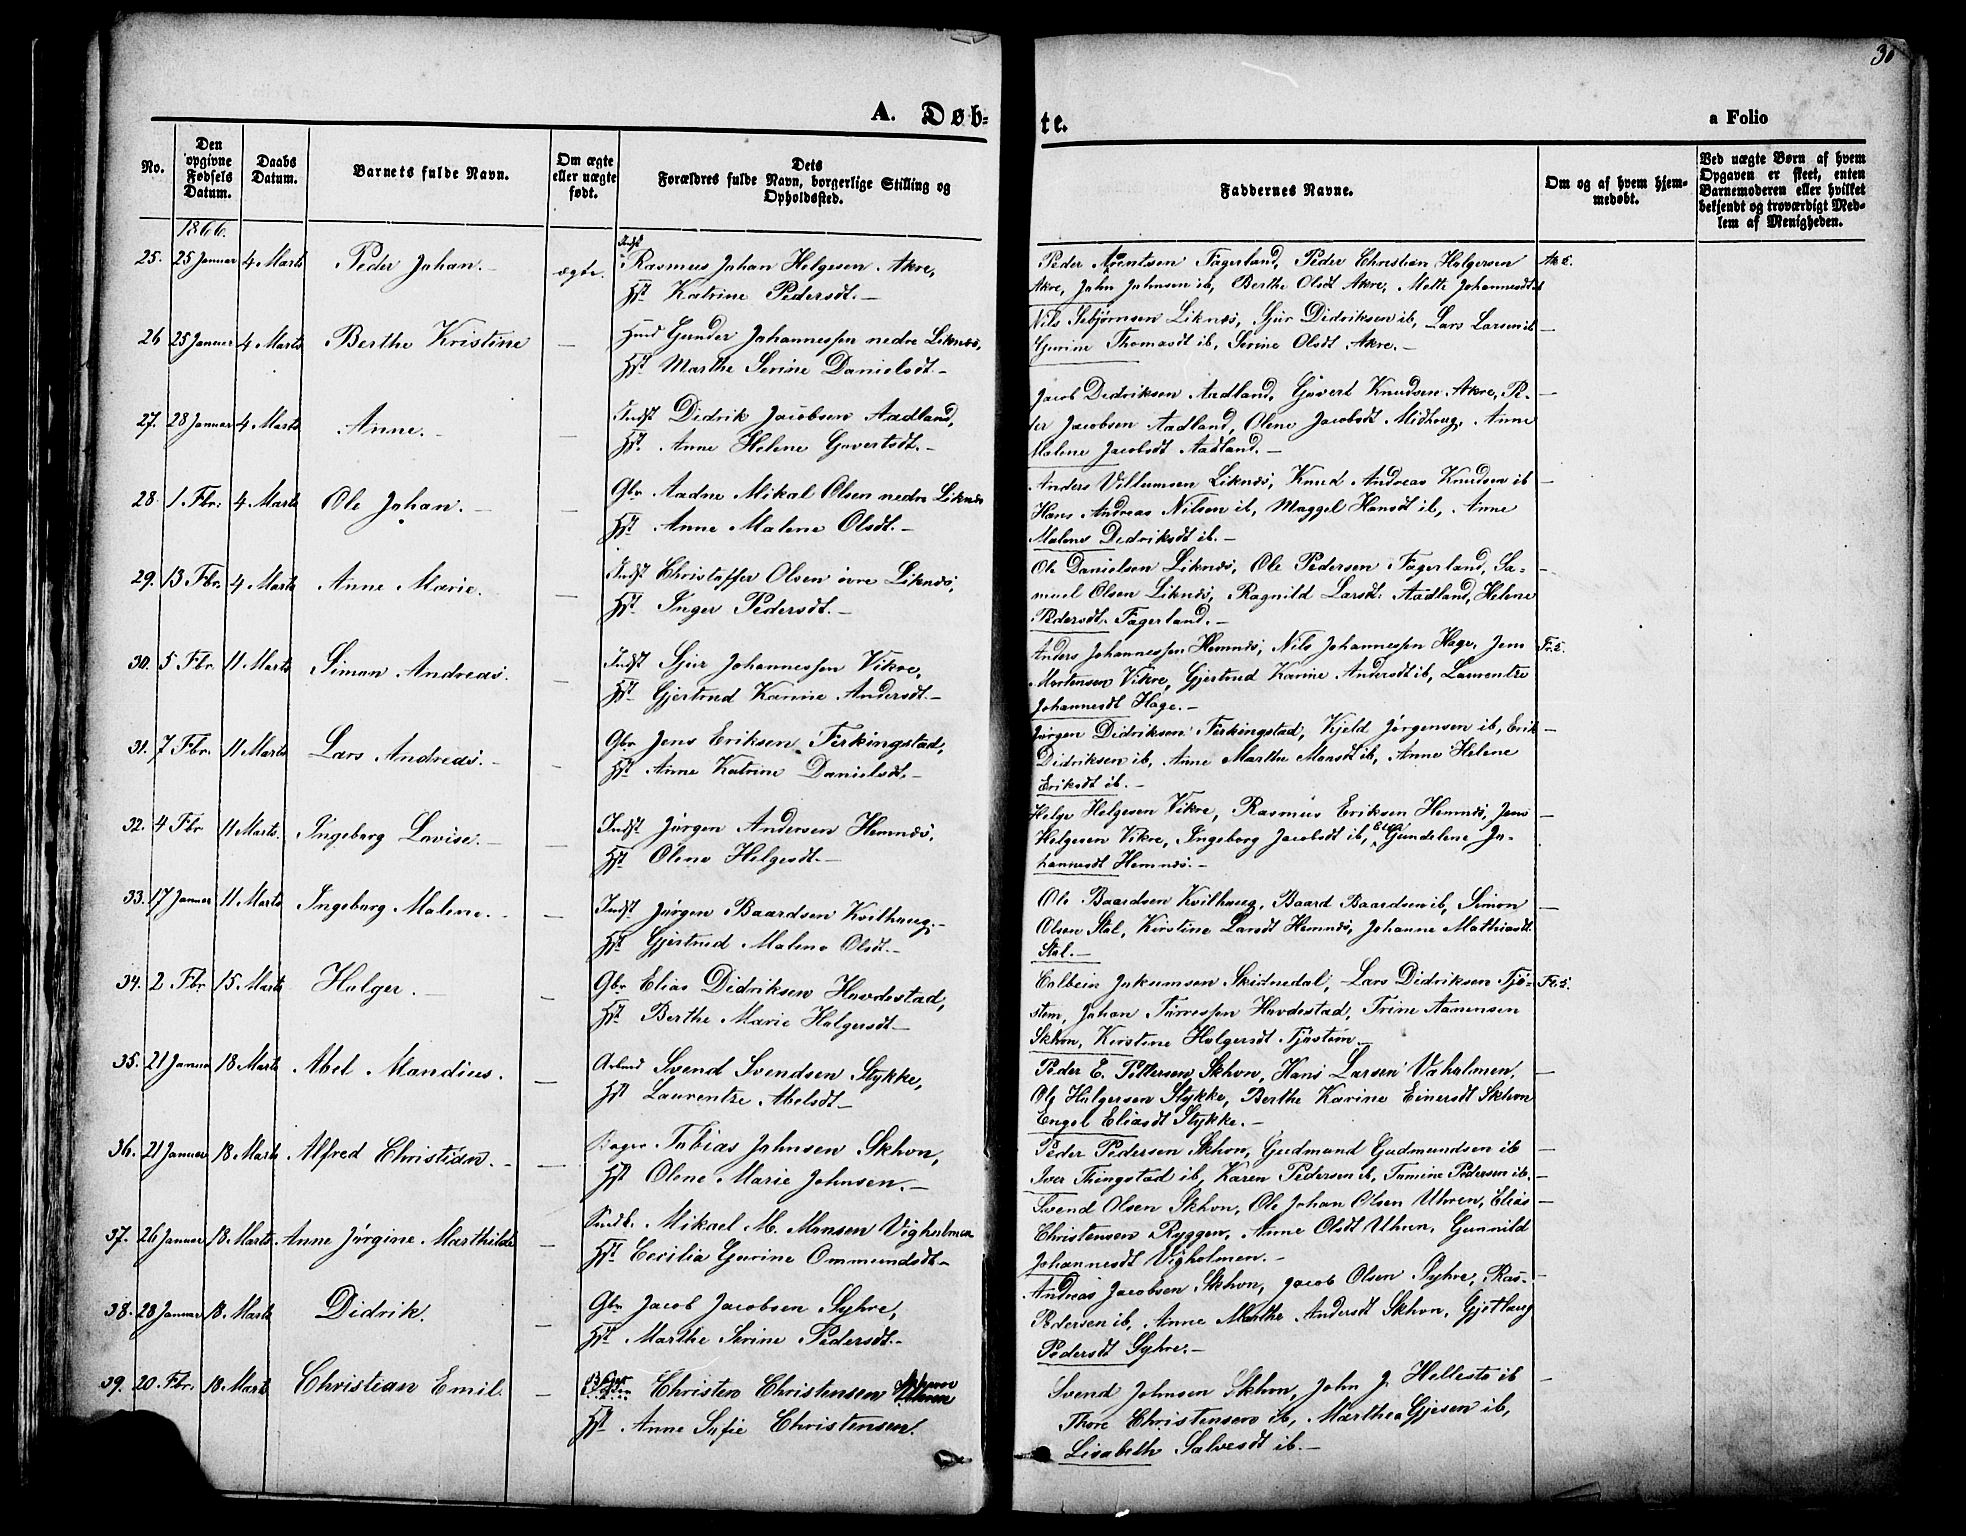 30
A. Døb-
te.
a Folio
No.
Den opgivne Fødsels Datum.
Daabs Datum.
Barnets fulde Navn.
Om ægte eller uægte født.
Dets Forældres fulde Navn, borgerlige Stilling og Opholdssted.
Faddernes Navne.
Om og af hvem hjemmedøbt.
Ved uægte Børn af hvem Opgaven er skeet, enten Barnemoderen eller hvilket bekjendt og troværdigt Medlem af Menigheden.
1866.
25. 25 Januar 4 Marts Peder Johan. ægte. Indst Rasmus Johan Helgesen Akre,
Hst Katrine Pedersdt.
Peder Fagerland, Peder Christian Holgersen
Akre, John Johnsen ib, Berthe Olsdt Akre, Mette Johannesdt
26 25 Januar 4 Marts Berthe Kristine — Gunder Johannessen nedre Liknæs,
Hst Marthe Serine Danielsdt.
Nils Liknæs, Sjur Didriksen ib, Lars Larsen ib
Gurine Thomasdt ib, Serine Olsdt Akre.
27. 28 Januar 4 Marts Anne. — Indst Didrik Jacobsen Aadland,
Hst. Anne Helene Govertsdt.
Jacob Didriksen Aadland, Govert Knudsen Akre, Pe-
der Jacobsen Aadland, Olene Jacobsdt Midhaug, Anne
Malene Jacobsdt Aadland.
28 1. Fbr: 4 Marts Ole Johan. — Gbr Aadne Mikal Olsen nedre Liknæs
Hst Anne Malene Olsdt.
Anders Villumsen Liknæs, Knud Andreas Knudsen ib
Hans Andreas Nilsen ib, Maggel Hansdt ib, Anne
Malene Didriksdt ib.
29. 13 Fbr. 4 Marts Anne Marie. — Indst Christoffer Olsen övre Liknæs,
Hst Inger Pedersdt.
Ole Danielsen Liknæs, Ole Pedersen Fagerland, Sa-
muel Olsen Liknæs, Ragnild Larsdt Aadland, Helene
Pedersdt. Fagerland.
30. 5 Fbr. 11 Marts Simon Andreas. — Indst Sjur Johannessen Vikre,
Hst Gjertrud Karine Andersdt.
Anders Johannessen Hemnæs, Nils Johannessen Hage, Jens
Mortensen Vikre, Gjertrud Karine Andersdt ib, Laurentze
Johannesdt Hage.
31. 7 Fbr. 11 Marts Lars Andreas. — Gbr Jens Eriksen Ferkingstad,
Hst Anne Katrine Danielsdt.
Jørgen Didriksen Ferkingstad, Kjeld Jørgensen ib, Erik
Didriksen ib, Anne Marthe Monsdt ib, Anne Helene
Eriksdt ib.
32. 4 Fbr 11 Marts. Ingeborg Lovise. — Indst Jørgen Andersen Hemnæs,
Hst Olene Helgesdt.
Helge Helgesen Vikre, Rasmus Eriksen Hemnæs, Jens
Helgesen Vikre, Ingeborg Jacobsdt ib, Gundeline Jo-
hannesdt Hemnæs.
33. 17 Januar 11 Marts Ingeborg Malene. — Indst Jørgen Baardsen Kvilhaug,
Hst Gjertrud Malene Olsdt.
Ole Baardsen Kvilhaug, Baard Baardsen ib, Simon
Olsen Stol, Kirstine Larsdt Hemnæs, Johanne Mathiasdt
Stol.
34. 2 Fbr 15 Marts Holger. — Gbr Elias Didriksen Hovdestad,
Hst Berthe Marie Holgersdt
Jakumsen Skidnedal, Lars Didriksen Tjö-
stem, Johan Hovdestad, Trine Aanensen
Skhvn, Kirstine Holgersdt Tjöstem.
35. 21 Januar 18 Marts Abel Mandius. — Svend Svendsen Stykke,
Hst Laurentze Abelsdt
Peder E. Pettersen Skhvn, Hans Larsen Vaholmen,
Ole Holgersen Stykke, Berthe Karine Einersdt Skhvn
Engel Eliasdt Stykke.
36. 21 Januar 18 Marts Alfred Christian. — Tobias Johnsen Skhvn,
Hst Olene Marie Johnsen.
Peder Pedersen Skhvn, Gudmund Gudmundsen ib
Iver Thingstad ib, Karen Pedersen ib, Tomine Pedersen ib.
37. 26 Januar 18 Marts Anne Jørgine Marthilde — Mikael M. Monsen Vigholmen
Hst. Cecilia Gurine Ommundsdt
Svend Olsen Skhvn, Ole Johan Olsen Uhren, Elias
Christensen Ryggen, Anne Olsdt Uhren, Gunnild
Johannesdt Vigholmen.
38. 28 Januar 18 Marts Didrik. — Gbr Jacob Jacobsen Syhre,
Hst Marthe Serine Pedersdt.
Andreas Jacobsen Skhvn, Jacob Olsen Syhre, Ras.
Pedersen ib, Anne Marthe Andersdt Skhvn, Gjetlaug
Pedersdt Syhre.
39. 20. Fbr. 18. Marts Christian Emil. — Christen Christensen
Hst Anne Sofie Christensen.
Svend Johnsen Skhvn, John J. Hellestö ib
Thore Christensen ib, Marthea Gjesen ib,
Lisabeth Salvesdt ib.